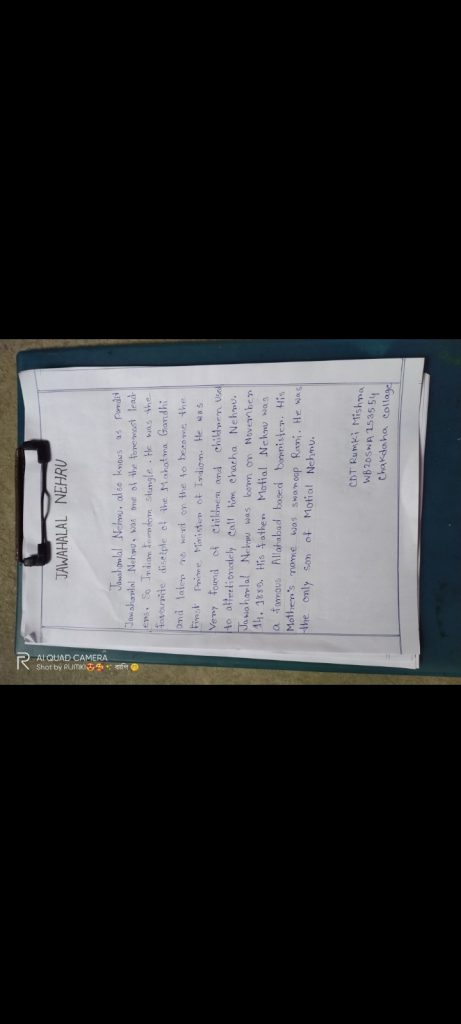 JAWAHALAL NEHRU
Jawaharlal Nehru, also knows as Pandit
Jawaharlal Nehru, was one of the foremost lead
ers. So Indian freedom stangle. He was the
favourite disciple of the Mahatma Gandhi
and later ne went on the to become the
First prime Minister of Indian. He was
very found of Children and children used
to affectionately Call him chacha Nehru.
Jawaharlal Nehru was born on November
14, 1889. His father Motial Nehru was
a famous Allatabad based barrister. His
Mother's name was swaroop Rani. He was
the only son of Motial Nehru.
CDT Rumki Mishra
WB20SWA253554
Chakdaha Collage
AI QUAD CAMERA
Shot by RUMKI😍🥰 রাশি 😊